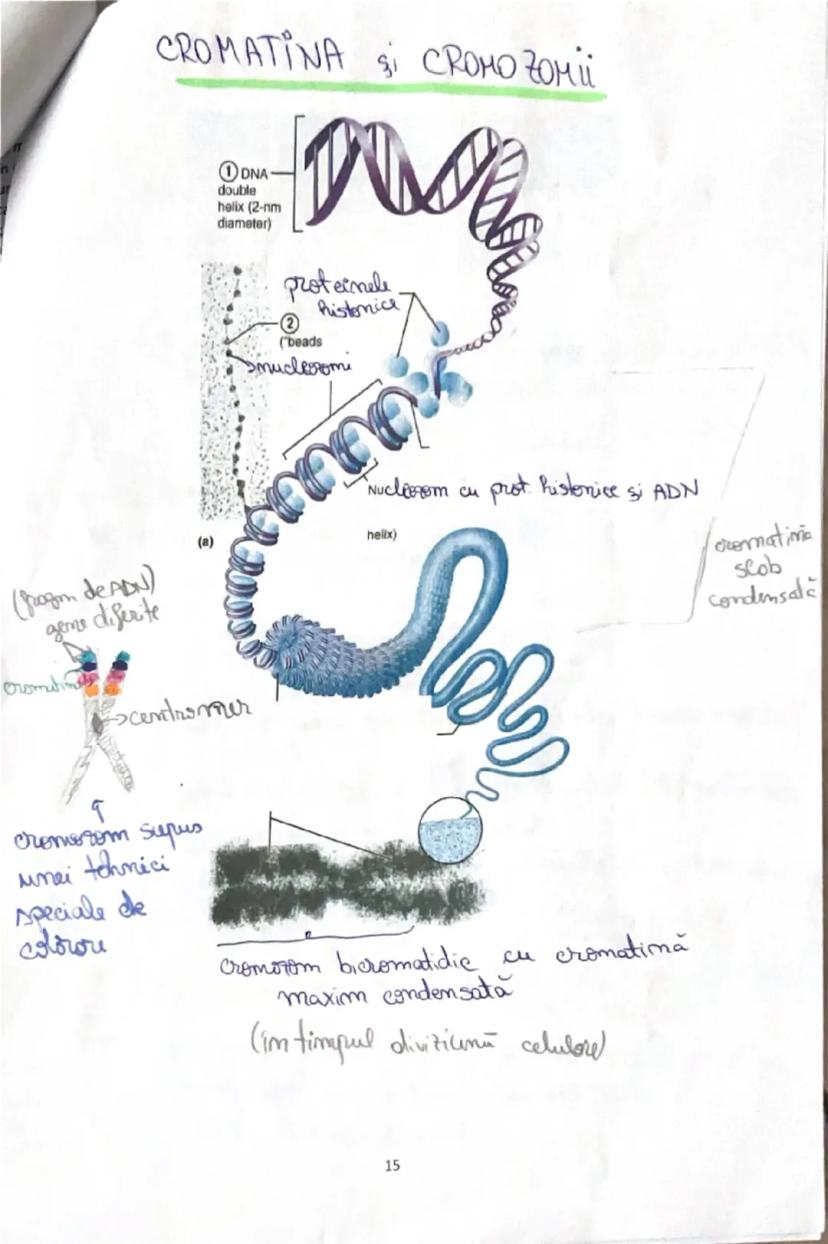 CROMATINA și CROMOZOMII
① DNA
double
helix (2-nm
diameter)
proteinele
histonice
②
("beads
nucleozomi
Nucleozom cu prot. histonice și ADN
(a)
helix)
cromatină
slab
condensată
(fragm de ADN)
gene diferite
cromatină
centromer
cromozom supus
unei tehnici
speciale de
colorare
cromozom bicromatidic cu cromatină
maxim condensată
(în timpul diviziunii celulare)
15